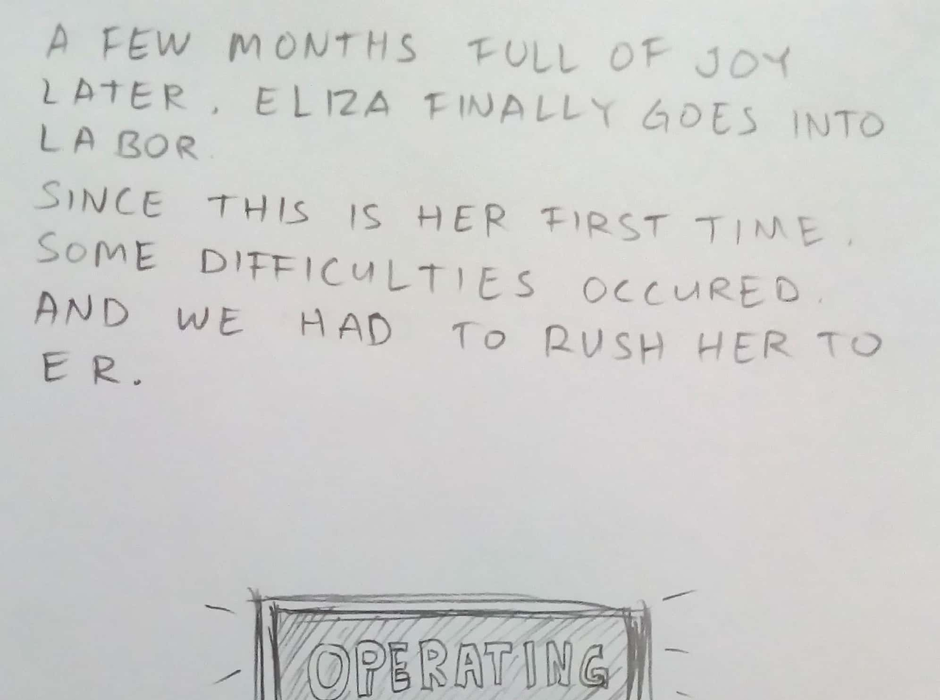 A FEW MONTHS FULL OF JOY
LATER, ELIZA FINALLY GOES INTO
LABOR.
SINCE THIS IS HER FIRST TIME,
SOME DIFFICULTIES OCCURED.
AND WE HAD TO RUSH HER TO
ER.
OPERATING